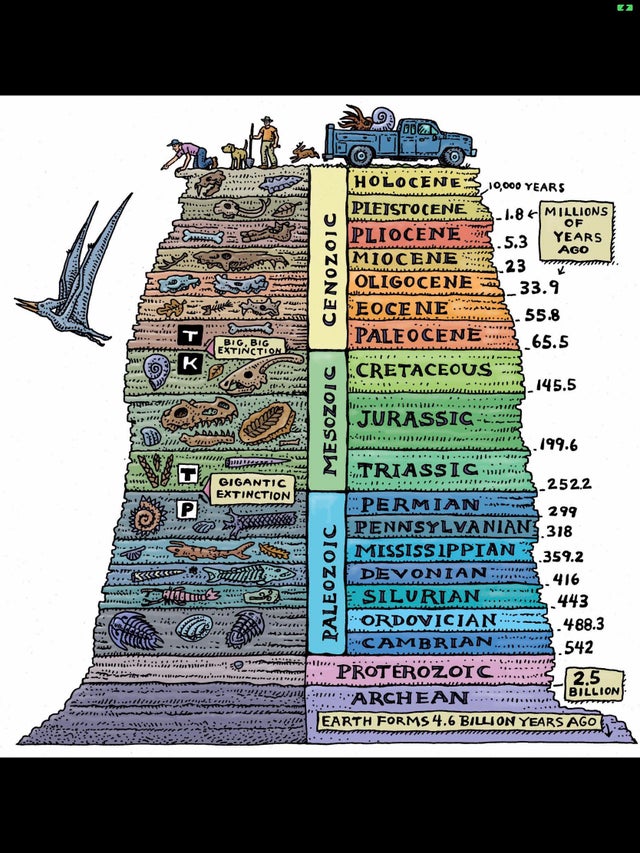 HOLOCENE
10,000 YEARS
PLEISTOCENE
1.8
MILLIONS
OF
YEARS
AGO
PLIOCENE
5.3
MIOCENE
23
OLIGOCENE
33.9
EOCENE
55.8
PALEOCENE
65.5
CENOZOIC
T
BIG, BIG
EXTINCTION
K
CRETACEOUS
145.5
JURASSIC
199.6
TRIASSIC
252.2
MESOZOIC
T
GIGANTIC
EXTINCTION
P
PERMIAN
299
PENNSYLVANIAN
318
MISSISSIPPIAN
359.2
DEVONIAN
416
SILURIAN
443
ORDOVICIAN
488.3
CAMBRIAN
542
PALEOZOIC
PROTEROZOIC
2.5
BILLION
ARCHEAN
EARTH FORMS 4.6 BILLION YEARS AGO